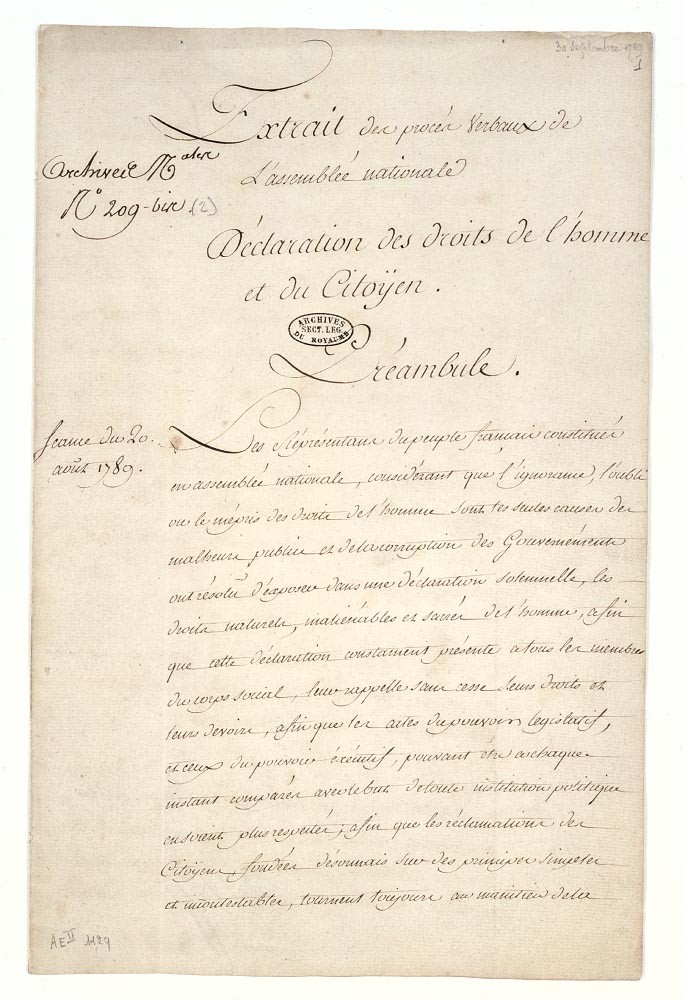 30 Septembre 1789
1
Extrait des procès Verbaux de
L'assemblée nationale
Archives N.ales
N° 209-bis (2)
Déclaration des droits de l'homme
et du Citoÿen.
ARCHIVES
SECT. LEG.
DU ROYAUME
Préambule.
Seance du 20.
août 1789.
Les Réprésentans du peuple francais constitués
en assemblée nationale, considérant que l'ignorance, l'oubli
ou le mépris des droits de l'homme sont les seules causes des
malheurs publics et de la corruption des Gouvernéments
ont résolu d'exposer dans une déclaration solemnelle, les
droits naturels, inaliénables et sacrés de l'homme, afin
que cette déclaration constament présente a tous les membres
du corps social, leur rappelle sans cesse leurs droits et
leurs devoirs, afin que les actes du pouvoir legislatif,
et ceux du pouvoir éxécutif, pouvant etre a chaque
instant comparés avec le but de toute institution politique
en soient plus respectés; afin que les réclamations des
Citoyens, fondées désormais sur des principes simples
et incontestables, tournent toujours au maintien de la
AE II 1129